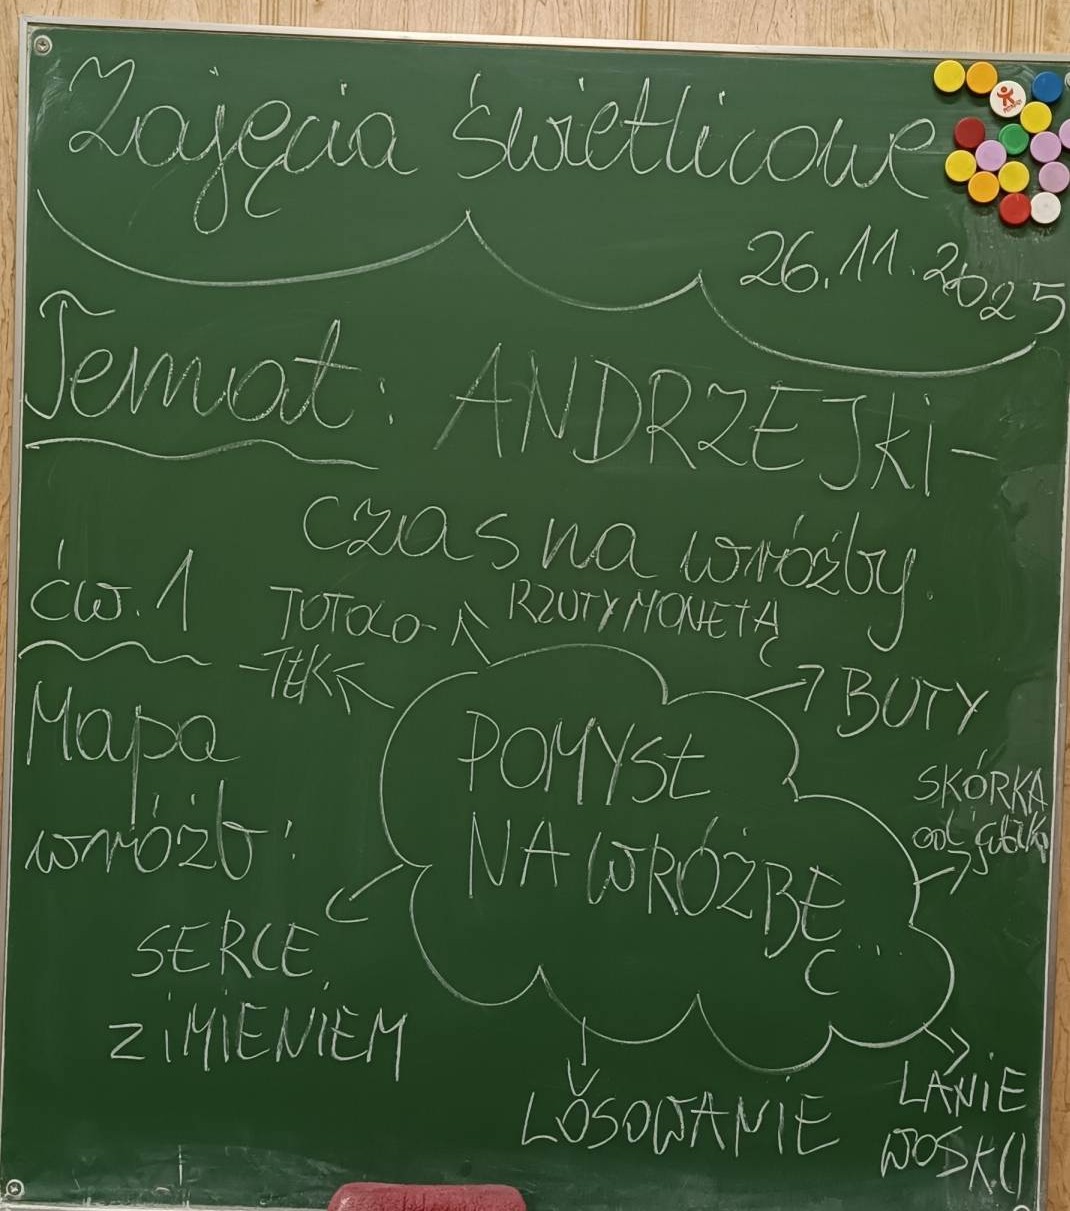 Zajęcia świetlicowe
26.11.2025
Temat: ANDRZEJki -
czas na wróżby.
ćw. 1
Mapa
wróżb:
POMYSŁ
NA WRÓŻBĘ...
TOTOLO-
-TEK
RZUTY MONETĄ
BUTY
SKÓRKA
od
LANIE
WOSKU
LOSOWANIE
SERCE
Z iMIENIEM